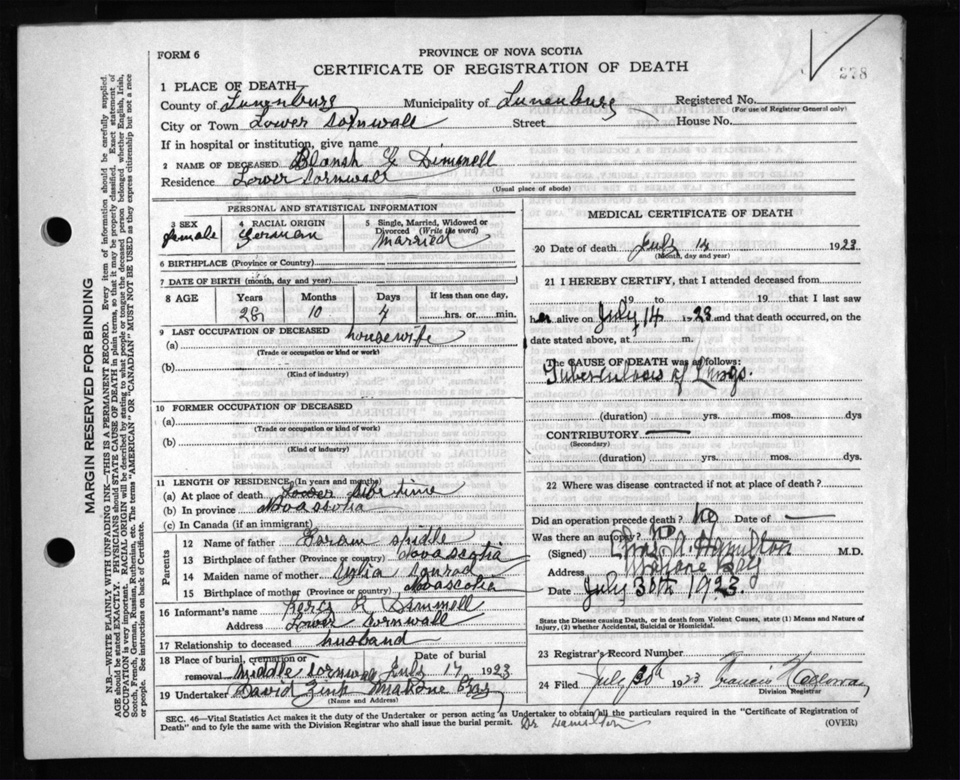 FORM 6
PROVINCE OF NOVA SCOTIA
CERTIFICATE OF REGISTRATION OF DEATH
278
1 PLACE OF DEATH
County of Lunenburg Municipality of Lunenburg Registered No.
(For use of Registrar General only)
City or Town Lower Cornwall Street House No.
If in hospital or institution, give name
2 NAME OF DECEASED Blansh Dimmell
Residence Lower Cornwall
(Usual place of abode)
PERSONAL AND STATISTICAL INFORMATION
3 SEX female
4 RACIAL ORIGIN German
5 Single, Married, Widowed or Divorced (Write the word) married
6 BIRTHPLACE (Province or Country)
7 DATE OF BIRTH (month, day and year)
8 AGE Years Months Days If less than one day,
10 4 hrs. or min.
9 LAST OCCUPATION OF DECEASED
(a) housewife
(Trade or occupation or kind or work)
(b)
(Kind of industry)
10 FORMER OCCUPATION OF DECEASED
(a)
(Trade or occupation or kind of work)
(b)
(Kind of industry)
11 LENGTH OF RESIDENCE (In years and months)
(a) At place of death life time
(b) In province Novascotia
(c) In Canada (if an immigrant)
Parents
12 Name of father spidle
13 Birthplace of father (Province or Country) Novascotia
14 Maiden name of mother conrad
15 Birthplace of mother (Province or Country) Novascotia
16 Informant's name
Address Lower Cornwall
17 Relationship to deceased husband
18 Place of burial, cremation or removal Middle Cornwall Date of burial July 17 1923
19 Undertaker David Zink Mahone Bay
(Name and Address)
MEDICAL CERTIFICATE OF DEATH
20 Date of death July 14 1923
(Month, day and year)
21 I HEREBY CERTIFY, that I attended deceased from
19 to 19 that I last saw
her alive on July 14 1923 and that death occurred, on the
date stated above, at m.
The CAUSE OF DEATH was as follows:
Tuberculosis of Lungs.
(duration) yrs. mos. dys
CONTRIBUTORY —
(Secondary)
(duration) yrs. mos. dys.
22 Where was disease contracted if not at place of death?
Did an operation precede death? No Date of —
Was there an autopsy? No
(Signed) A. Hamilton M.D.
Address Mahone Bay
Date July 30th 1923.
State the Disease causing Death, or in death from Violent Causes, state (1) Means and Nature of Injury, (2) whether Accidental, Suicidal or Homicidal.
23 Registrar's Record Number
24 Filed July 30th 1923 Francis
Division Registrar
SEC. 46—Vital Statistics Act makes it the duty of the Undertaker or person acting as Undertaker to obtain all the particulars required in the "Certificate of Registration of
Death" and to fyle the same with the Division Registrar who shall issue the burial permit. Dr Hamilton (OVER)
MARGIN RESERVED FOR BINDING
N.B.—WRITE PLAINLY WITH UNFADING INK—THIS IS A PERMANENT RECORD. Every item of information should be carefully supplied.
AGE should be stated EXACTLY. PHYSICIANS should STATE CAUSE OF DEATH in plain terms, so that it may be properly classified. Exact statement of
OCCUPATION is very important. RACIAL ORIGIN will be described by stating to what people or tongue the deceased person belonged whether English, Irish,
Scotch, French, German, Russian, Ruthenian, etc. The terms "AMERICAN" OR "CANADIAN" MUST NOT BE USED as they express citizenship but not a race
or people. See instructions on back of Certificate.